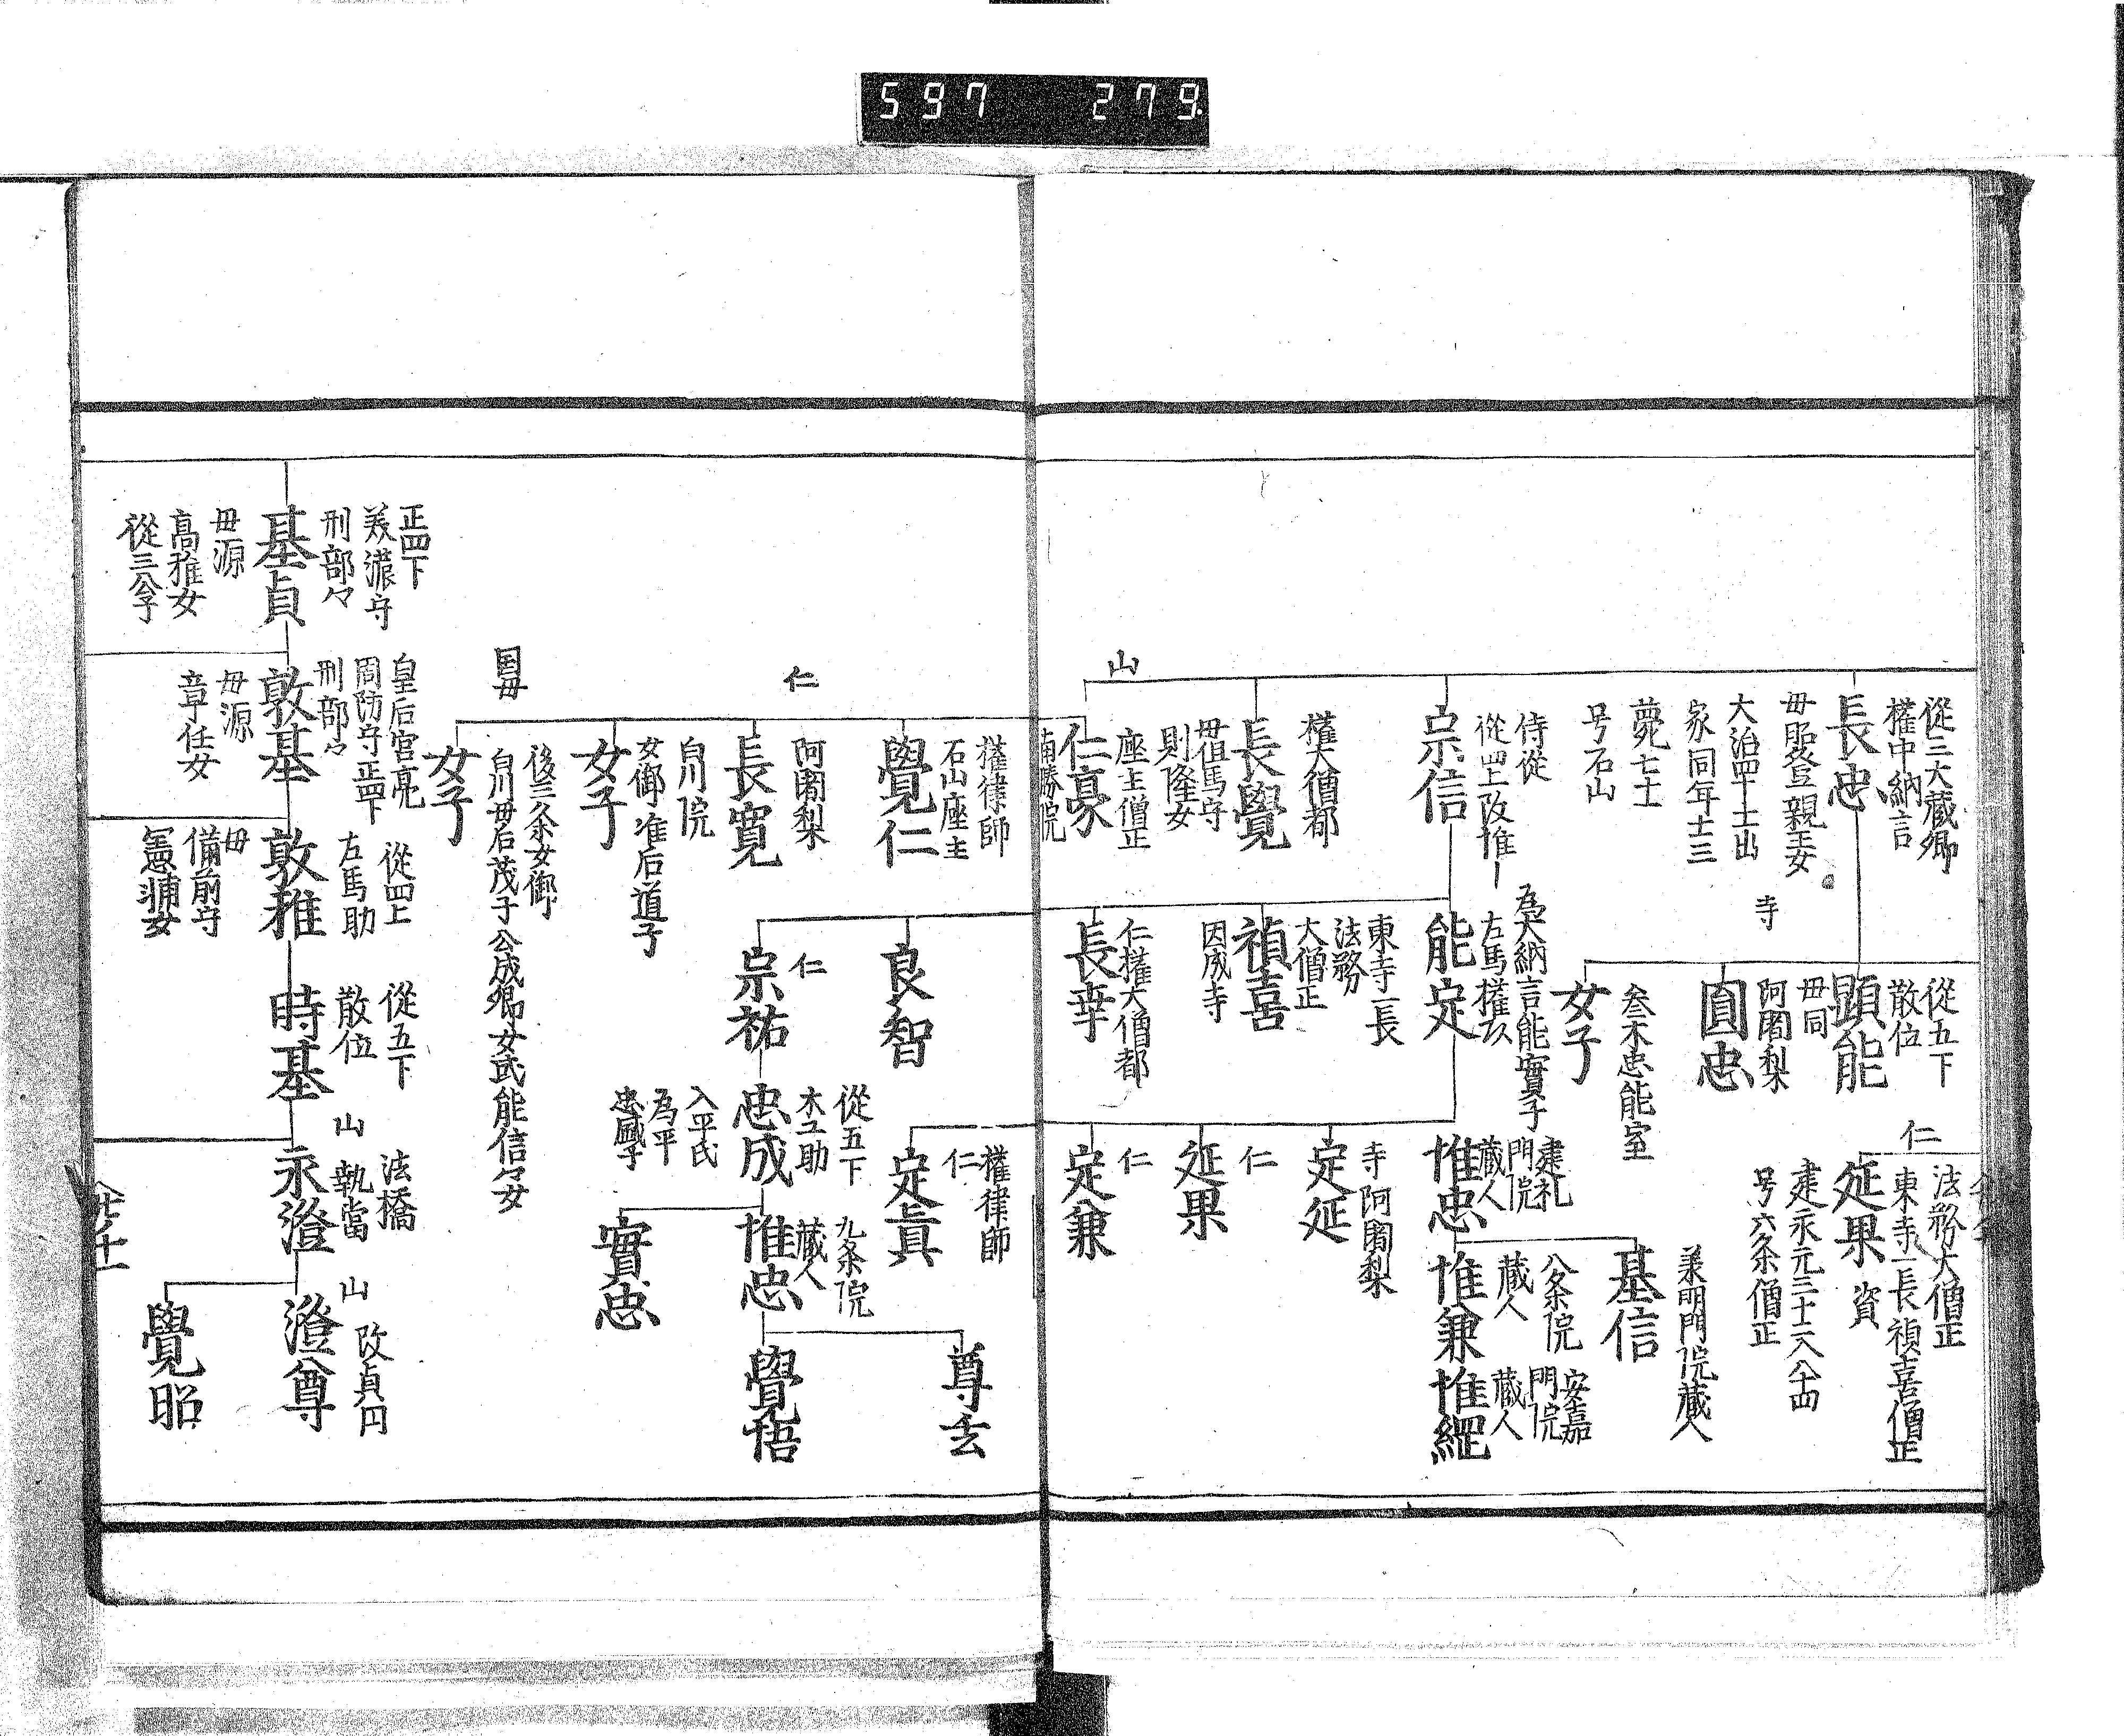 597 279
從二大蔵卿
権中納言
長忠
毋昭登親王女
大治四十一十出
家同年十二三
薨七十
号石山
侍從
從四上改惟ー
宗信
権大僧都
長覺
毋但馬守
則隆女
山
座主僧正
仁豪
南勝院
從五下
散位
顕能
毋同
寺
阿闍梨
圓忠
叅木忠能室
女子
為大納言能實子
左馬権
能定
東寺一長
法務
大僧正
禎喜
因成寺
仁権大僧都
長幸
仁
法務大僧正
東寺一長禎喜僧正
延果
資
建永元
号六条僧正
羕明門院蔵人
基信
建礼
門院
蔵人
惟忠
八条院
蔵人
惟兼
安嘉
門院
蔵人
惟繩
寺阿闍梨
定延
仁
延果
仁
定兼
権律師
石山座主
覺仁
仁
阿闍梨
長寛
白川院
女御准后道子
女子
後三条女御
国毋
白川毋后茂子公成卿女武能信々女
女子
良智
仁
宗祐
權律師
仁
定眞
從五下
木工助
忠成
入平氏
為平
忠盛子
九条院
蔵人
惟忠
實忠
尊玄
覺悟
正四下
美濃守
刑部々
基貞
毋源
高雅女
從三公子
皇后宮亮
周防守正四下
刑部々
敦基
毋源
章任女
從四上
左馬助
敦雅
毋
備前守
憲輔女
從五下
散位
時基
法橋
山執當
永澄
山改貞円
澄尊
覺昭